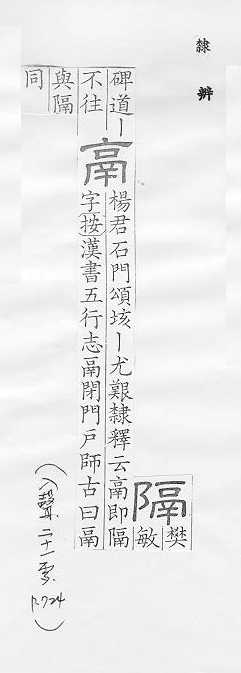 隸辨
隔
樊
敏
碑道丨
不往
鬲
楊君石門頌垓丨尤艱隸釋云鬲即隔
字按漢書五行志鬲閉門戶師古曰鬲
與隔
同
(入聲二十一麥 P.724)